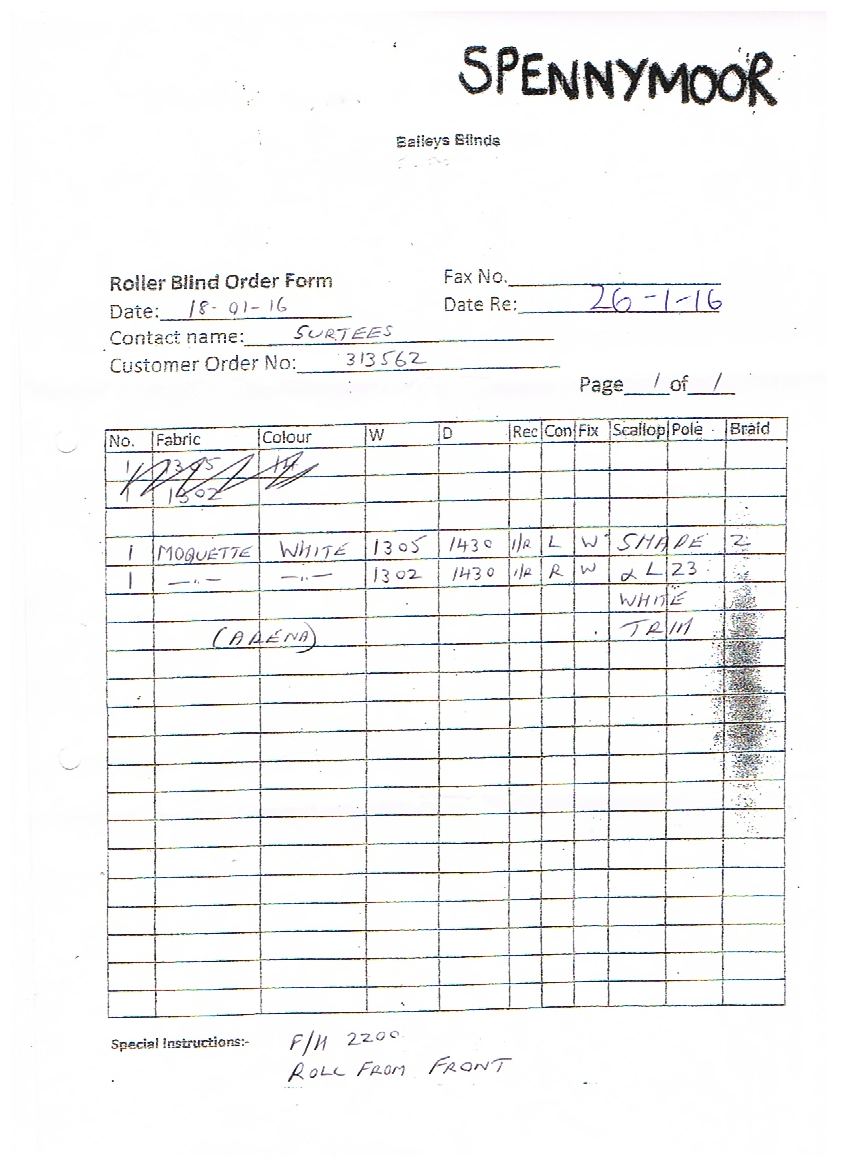 SPENNYMOOR
Baileys Blinds
Roller Blind Order Form
Fax No.
Date: 18-01-16
Date Re: 26-1-16
Contact name: SURTEES
Customer Order No: 313562
Page 1 of 1
No. Fabric Colour W D Rec Con Fix Scallop Pole Braid
1 1305
1 1302
1 MOQUETTE WHITE 1305 1430 I/R L W SHAPE 2
1 —"— —"— 1302 1430 I/R R W & L 23
WHITE
(ARENA) TRIM
Special Instructions:- F/H 2200
ROLL FROM FRONT